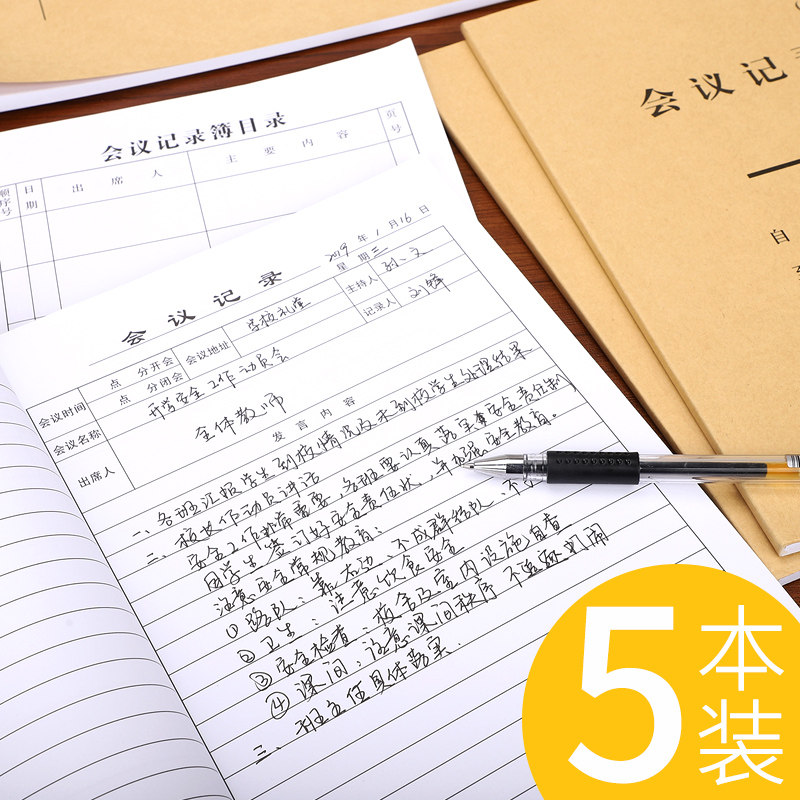 会议记录簿目录
顺序号 日期 出席人 主要内容 页号
会议记
自
2019年1月16日
星期三
会议记录
会议时间 点 分开会 点 分闭会 会议地址 学校礼堂 主持人 刘一文 记录人 刘锋
会议名称 开学安全工作动员会
出席人 全体教师
发言内容
一、各班汇报学生到校情况及未到校学生处理结果
二、校长作动员讲话
安全工作非常重要,各班要认真落实安全责任制,
同学生签订好安全责任状,并加强安全教育。
注意安全常规教育:
①路队:靠右边,不成群结队、不
②卫生:注意饮食安全
③安全检查:校舍及室内设施自查
④课间:注意课间秩序 不追逐打闹
三、班主任具体落实.
5本装